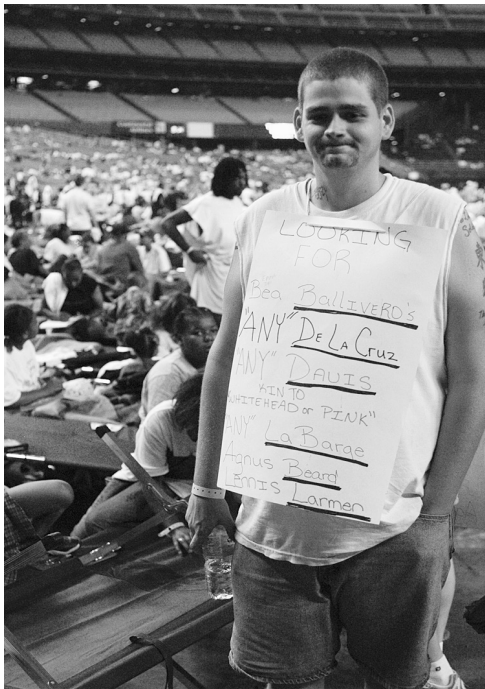 LOOKING
FOR
Bea BALLIVERO's
"ANY" DE LA CRUZ
"ANY" DAVIS
KIN TO
WHITEHEAD or PINK"
"ANY" LaBarge
Agnus Beard
Lennis Larmer